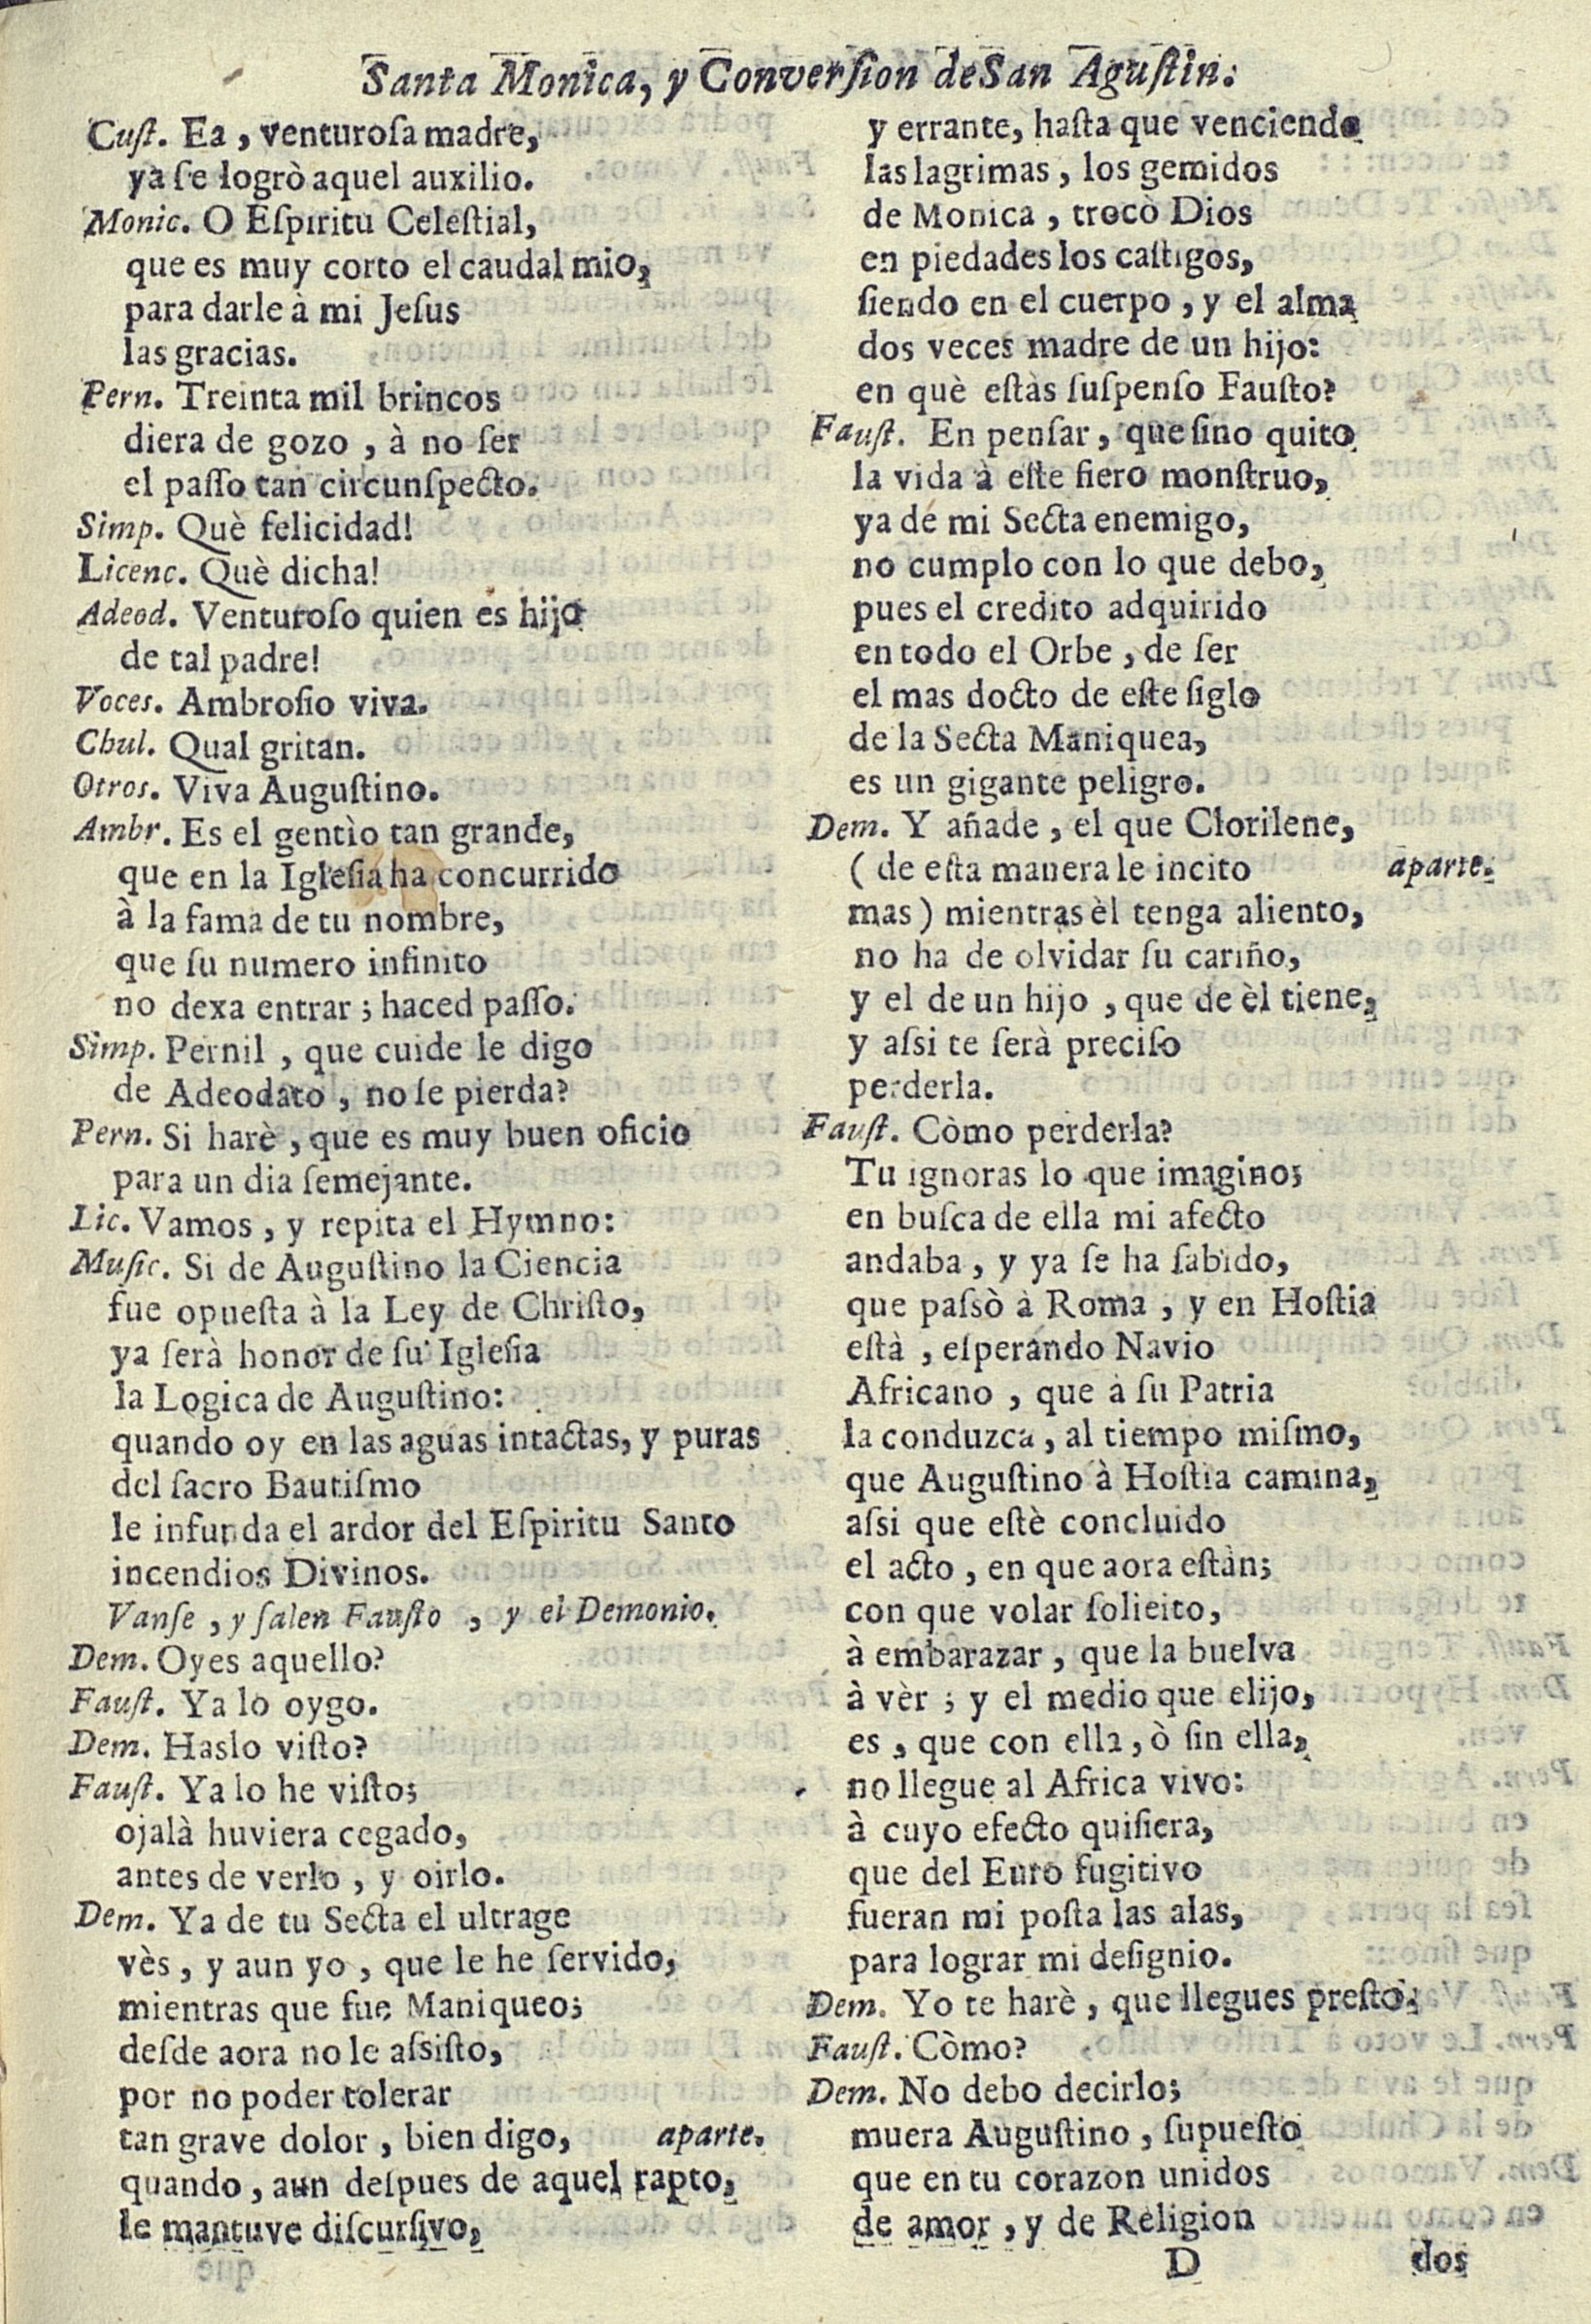 Santa Monica, y Conversion de San Agustin.
Cust. Ea, venturosa madre,
ya se logrò aquel auxilio.
Monic. O Espiritu Celestial,
que es muy corto el caudal mio,
para darle à mi Jesus
las gracias.
Pern. Treinta mil brincos
diera de gozo, à no ser
el passo tan circunspecto.
Simp. Què felicidad!
Licenc. Què dicha!
Adeod. Venturoso quien es hijo
de tal padre!
Voces. Ambrosio viva.
Chul. Qual gritan.
Otros. Viva Augustino.
Ambr. Es el gentìo tan grande,
que en la Iglesia ha concurrido
à la fama de tu nombre,
que su numero infinito
no dexa entrar; haced passo.
Simp. Pernil, que cuide le digo
de Adeodato, no se pierda?
Pern. Si harè, que es muy buen oficio
para un dia semejante.
Lic. Vamos, y repita el Hymno:
Music. Si de Augustino la Ciencia
fue opuesta à la Ley de Christo,
ya serà honor de su Iglesia
la Logica de Augustino:
quando oy en las aguas intactas, y puras
del sacro Bautismo
le infunda el ardor del Espiritu Santo
incendios Divinos.
Vanse, y salen Fausto, y el Demonio.
Dem. Oyes aquello?
Faust. Ya lo oygo.
Dem. Haslo visto?
Faust. Ya lo he visto;
ojalà huviera cegado,
antes de verlo, y oirlo.
Dem. Ya de tu Secta el ultrage
vès, y aun yo, que le he servido,
mientras que fue Maniqueo;
desde aora no le assisto,
por no poder tolerar
tan grave dolor, bien digo, aparte.
quando, aun despues de aquel rapto,
le mantuve discursivo,
y errante, hasta que venciendo
las lagrimas, los gemidos
de Monica, trocò Dios
en piedades los castigos,
siendo en el cuerpo, y el alma
dos veces madre de un hijo:
en què estàs suspenso Fausto?
Faust. En pensar, que sino quito
la vida à este fiero monstruo,
ya de mi Secta enemigo,
no cumplo con lo que debo,
pues el credito adquirido
en todo el Orbe, de ser
el mas docto de este siglo
de la Secta Maniquea,
es un gigante peligro.
Dem. Y añade, el que Clorilene,
( de esta manera le incito aparte.
mas) mientras èl tenga aliento,
no ha de olvidar su cariño,
y el de un hijo, que de èl tiene,
y assi te serà preciso
perderla.
Faust. Còmo perderla?
Tu ignoras lo que imagino;
en busca de ella mi afecto
andaba, y ya se ha sabido,
que passò à Roma, y en Hostia
està, esperando Navio
Africano, que à su Patria
la conduzca, al tiempo mismo,
que Augustino à Hostia camina,
assi que estè concluido
el acto, en que aora estàn;
con que volar solicito,
à embarazar, que la buelva
à vèr; y el medio que elijo,
es, que con ella, ò sin ella,
no llegue al Africa vivo:
à cuyo efecto quisiera,
que del Euro fugitivo
fueran mi posta las alas,
para lograr mi designio.
Dem. Yo te harè, que llegues presto.
Faust. Còmo?
Dem. No debo decirlo;
muera Augustino, supuesto
que en tu corazon unidos
de amor, y de Religion
D dos